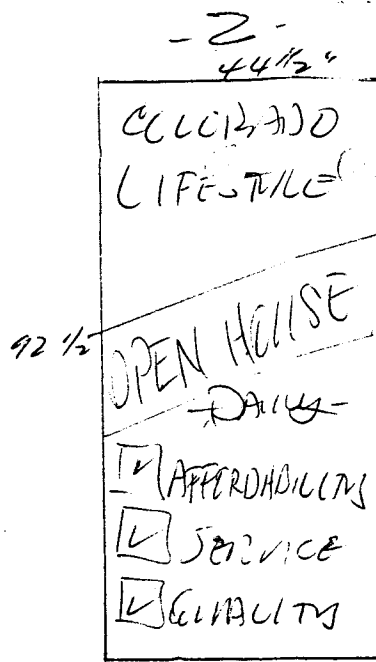 - 2 -
44 1/2"
COLORADO
LIFESTYLE
92 1/2
OPEN HOUSE
- DAILY -
AFFORDABILITY
SERVICE
QUALITY